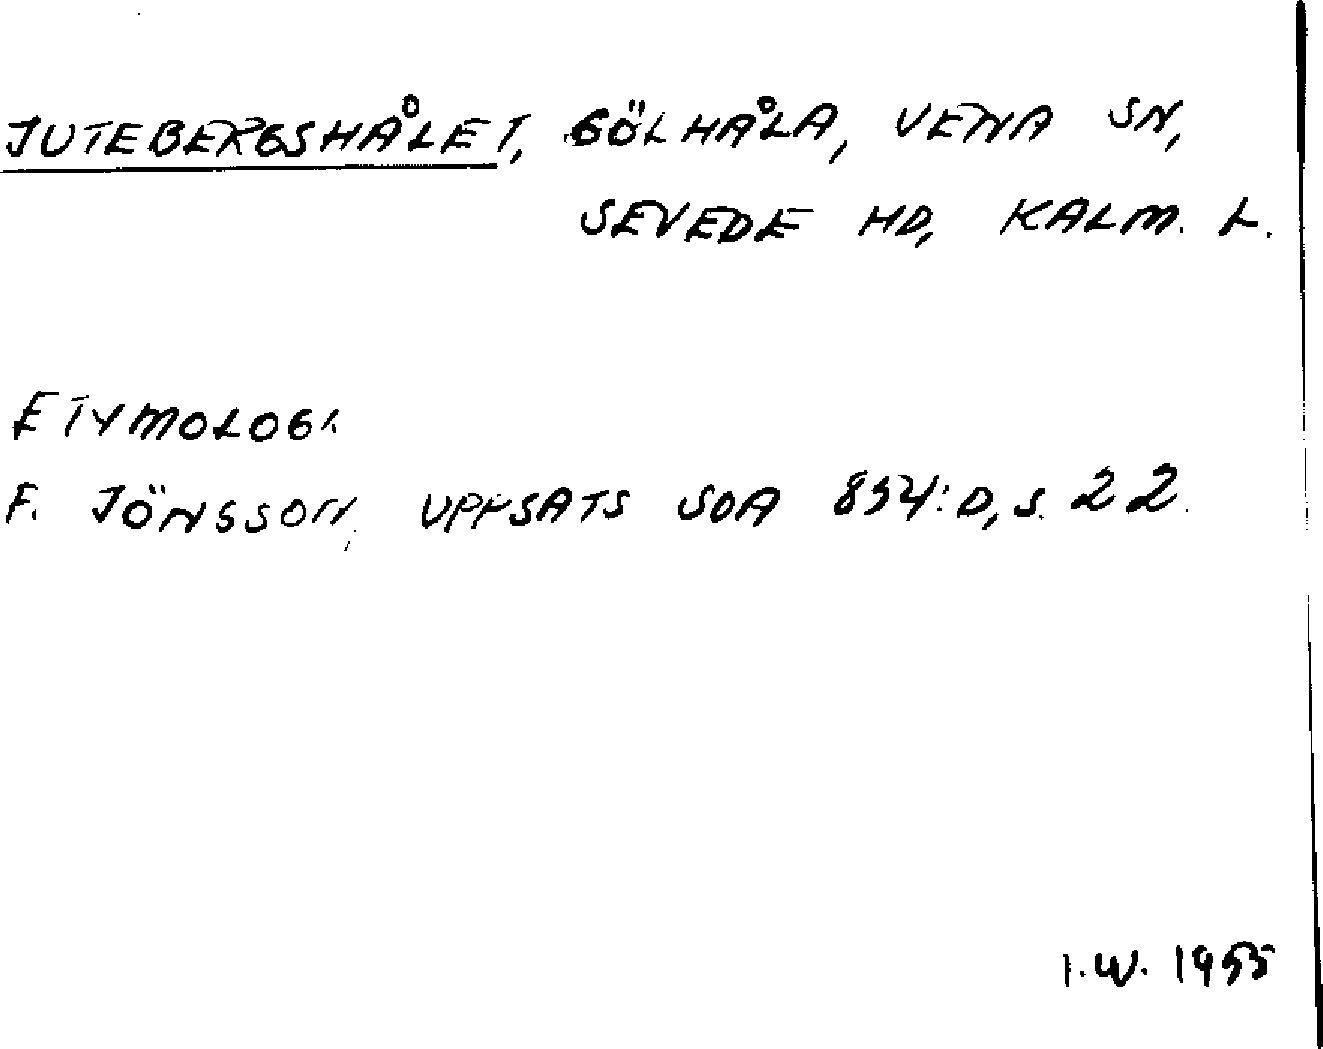 JUTEBERGSHÅLET, GÖLHÅLA, VENA SN,
SEVEDE HD, KALM. L.
ETYMOLOGI
F. JÖNSSON, UPPSATS SOA 854:D, S. 22.
I.W. 1955